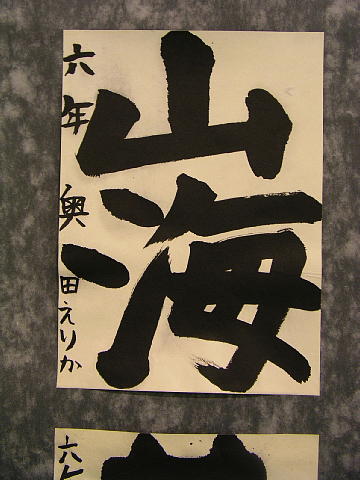 山海
六年 奥田えりか
六年